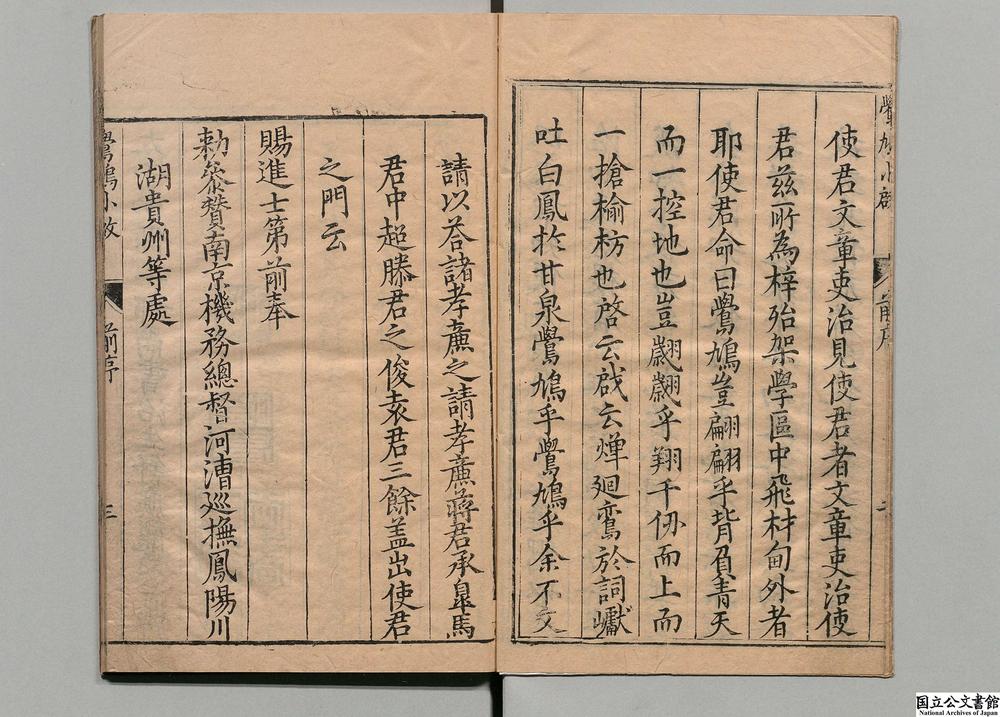 使君文章吏治見使君者文章吏治使
君兹所為梓殆架學區中飛材甸外者
耶使君命曰鷽鳩豈翩翩乎背負青天
而一控地也豈翽翽乎翔千仞而上而
一搶榆枋也啓云戱云燀廻鸞於詞巘
吐白鳳扵甘泉鷽鳩乎鷽鳩乎余不文
前序
請以荅諸孝亷之請孝亷蔣君承臯馬
君中超滕君之俊袁君三餘盖出使君
之門云
賜進士第前奉
勅叅賛南京機務總督河漕巡撫鳳陽川
湖貴州等處
前序
三
国立公文書館
National Archives of Japan